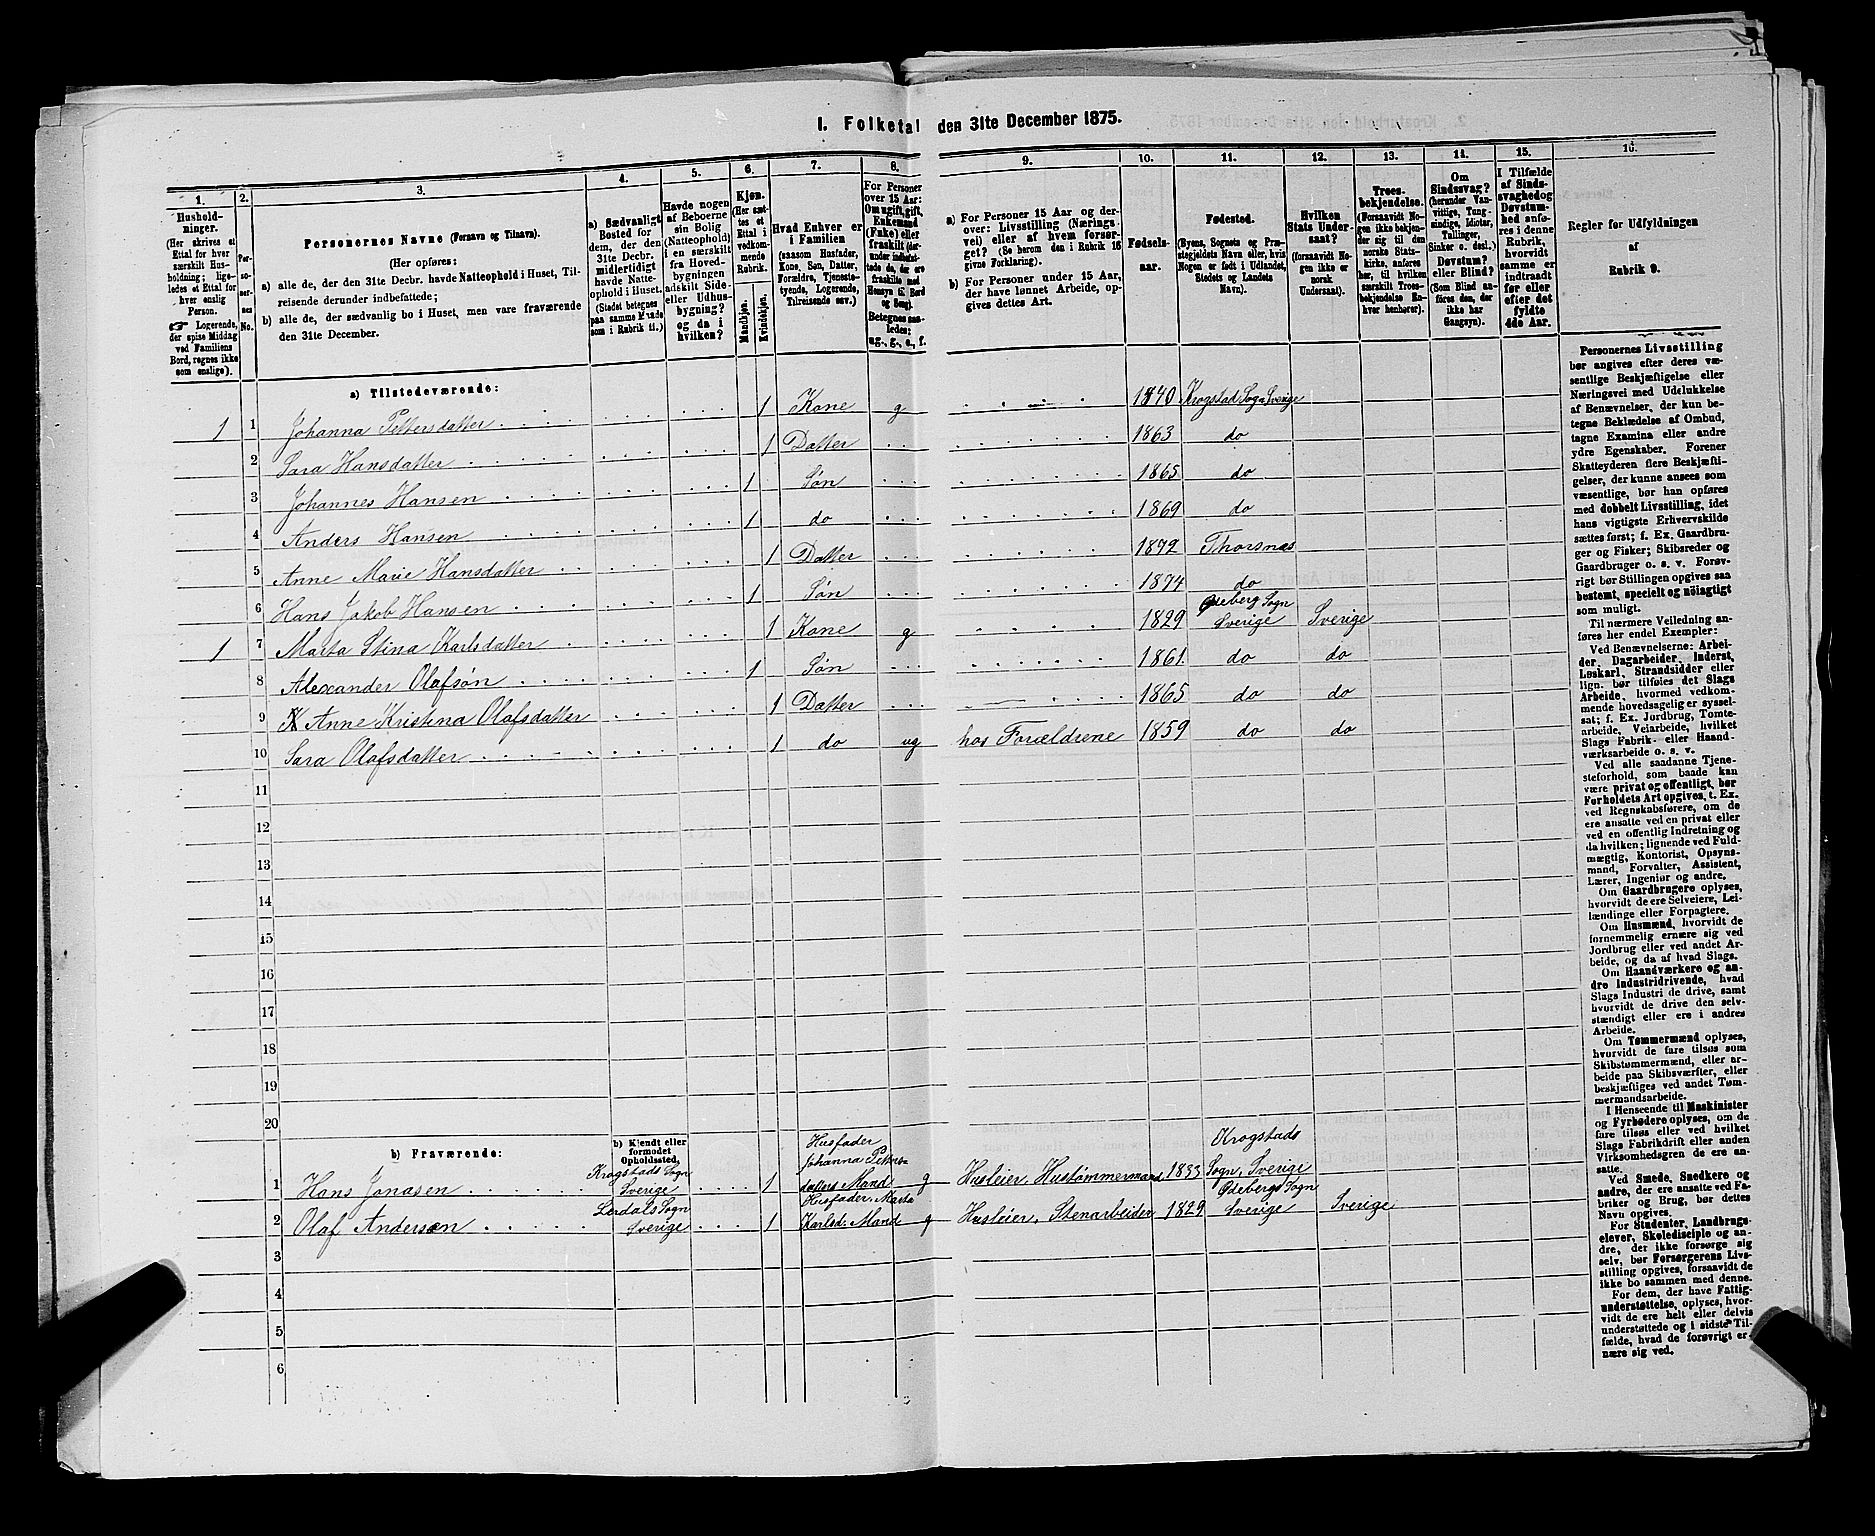 I. Folketal den 31te December 1875.
1. 2. 3. 4. 5. 6. 7. 8. 9. 10. 11. 12. 13. 14. 15. 16.
Hushold-
ninger.
(Her skrives et
Ettal for hver
særskilt Hus-
holdning; lige-
ledes et Ettal for
hver enslig
Person.
☞ Logerende,
der spise Middag
ved Familiens
Bord, regnes ikke
som enslige).
Per-
so-
ner-
nes
No.
Personernes Navne (Fornavn og Tilnavn).
(Her opføres:
a) alle de, der den 31te Decbr. havde Natteophold i Huset, Til-
reisende derunder indbefattede;
b) alle de, der sædvanlig bo i Huset, men vare fraværende
den 31te December.
a) Sædvanligt
Bosted for
dem, der den
31te Decbr.
midlertidigt
havde Natte-
ophold i Huset.
(Stedet betegnes
paa samme Maade
som i Rubrik 11.)
Havde nogen
af Beboerne
sin Bolig
(Natteophold)
i en særskilt
fra Hoved-
bygningen
adskilt Side-
eller Udhus-
bygning?
og da i
hvilken?
Kjøn.
(Her sæt-
tes et
Ettal i
vedkom-
mende
Rubrik.
Mandkjøn.
Kvindekjøn.
Hvad Enhver er
i Familien
(saasom Husfader,
Kone, Søn, Datter,
Forældre, Tjeneste-
tyende, Logerende,
Tilreisende osv.)
For Personer
over 15 Aar:
Om ugift, gift,
Enkemand
(Enke) eller
fraskilt (der-
under indbefat-
tede de, der ere
fraskilte med
Hensyn til Bord
og Seng).
Betegnes saa-
ledes:
ug., g., e., f.
a) For Personer 15 Aar og der-
over: Livsstilling (Nærings-
vei) eller af hvem forsør-
get? (Se herom den i Rubrik 16
givne Forklaring).
b) For Personer under 15 Aar,
der have lønnet Arbeide, op-
gives dettes Art.
Fødsels-
aar.
Fødested.
(Byens, Sognets og Præ-
stegjeldets Navn eller, hvis
Nogen er født i Udlandet,
Stedets og Landets
Navn).
Hvilken
Stats Under-
saat?
(forsaavidt No-
gen ikke er
norsk
Undersaat).
Troes-
bekjendelse.
(Forsaavidt No-
gen ikke bekjen-
der sig til den
norske Stats-
kirke, anføres
her, til hvilken
særskilt Troes-
bekjendelse En-
hver henhører).
Om
Sindssvag?
(herunder Van-
vittige, Tung-
sindige, Idioter,
Tullinger,
Sinker o. desl.)
Døvstum?
eller Blind?
(Som Blind an-
føres den, der
ikke har
Gangsyn).
I Tilfælde
af Sinds-
svaghed og
Døvstum-
hed anfø-
res i denne
Rubrik,
hvorvidt
samme er
indtraadt
før eller
efter det
fyldte
4de Aar.
Regler for Udfyldningen
af
Rubrik 9.
a) Tilstedeværende:
1 1 Johanna Pettersdatter 1 Kone g 1840 Krogstad Sogn Sverige
2 Sara Hansdatter 1 Datter 1863 do
3 Johannes Hansen 1 Søn 1865 do
4 Anders Hansen 1 do 1869 do
5 Anne Marie Hansdatter 1 Datter 1872 Thorsnæs
6 Hans Jakob Hansen 1 Søn 1874 do
1 7 Marta Stina Karlsdatter 1 Kone g 1829 Ødeberg Sogn Sverige Sverige
8 Alexander Olafsøn 1 Søn 1861 do do
9 Anne Kristina Olafsdatter 1 Datter 1865 do do
10 Sara Olafsdatter 1 do ug hos Forældrene 1859 do do
11
12
13
14
15
16
17
18
19
20
b) Fraværende:
b) Kjendt eller
formodet
Opholdssted.
1 Hans Jonasen Krogstads Sogn Sverige 1 Husfader Johanna Petters-datters Mand g Husleier, Hustømmermand 1833 Krogstads Sogn, Sverige
2 Olaf Andersen Lerdals Sogn Sverige 1 Husfader, Marta Karlsd. Mand g Husleier, Stenarbeider 1829 Ødebergs Sogn Sverige Sverige
3
4
5
6
Personernes Livsstilling
bør angives efter deres væ-
sentlige Beskjæftigelse eller
Næringsvei med Udelukkelse
af Benævnelser, der kun be-
tegne Beklædelse af Ombud,
tagne Examina eller andre
ydre Egenskaber. Forener
Skatteyderen flere Beskjæfti-
gelser, der kunne ansees som
væsentlige, bør han opføres
med dobbelt Livsstilling, idet
hans vigtigste Erhvervskilde
sættes først; f. Ex. Gaardbru-
ger og Fisker; Skibsreder og
Gaardbruger o. s. v. Forøv-
rigt bør Stillingen opgives saa
bestemt, specielt og nøiagtigt
som muligt.
Til nærmere Veiledning an-
føres her endel Exempler:
Ved Benævnelserne: Arbei-
der, Dagarbeider, Inderst,
Løskarl, Strandsidder eller
lign. bør tilføies det Slags
Arbeide, hvormed vedkom-
mende hovedsagelig er syssel-
sat; f. Ex. Jordbrug, Tomte-
arbeide, Veiarbeide, hvilket
Slags Fabrik- eller Haand-
værksarbeide o. s. v.
Ved alle saadanne Tjene-
steforhold, som baade kan
være privat og offentligt, bør
Forholdets Art opgives, t. Ex.
ved Regnskabsførere, om de
ere ansatte ved en privat eller
ved en offentlig Indretning og
da hvilken; lignende ved Fuld-
mægtig, Kontorist, Opsyns-
mand, Forvalter, Assistent,
Lærer, Ingeniør og andre.
Om Gaardbrugere oplyses,
hvorvidt de ere Selveiere, Lei-
lændinge eller Forpagtere.
Om Husmænd, hvorvidt de
fornemmelig ernære sig ved
Jordbrug eller ved andet Ar-
beide, og da af hvad Slags.
Om Haandværkere og an-
dre Industridrivende, hvad
Slags Industri de drive, samt
hvorvidt de drive den selv-
stændigt eller ere i andres
Arbeide.
Om Tømmermænd oplyses,
hvorvidt de fare tilsøs som
Skibstømmermænd, eller ar-
beide paa Skibsværfter, eller
beskjæftiges ved andet Tøm-
mermandsarbeide.
I Henseende til Maskinister
og Fyrbødere oplyses, om de
fare tilsøs eller ved hvilket
Slags Fabrikdrift eller anden
Virksomhedsgren de ere an-
satte.
Ved Smede, Snedkere og
andre, der ere ansatte ved Fa-
briker og Brug, bør dettes
Navn opgives.
For Studenter, Landbrugs-
elever, Skoledisciple og an-
dre, der ikke forsørge sig
selv, bør Forsørgerens Livs-
stilling opgives, forsaavidt de
ikke bo sammen med denne.
For dem, der have Fattig-
understøttelse, oplyses, hvor-
vidt de ere helt eller delvis
understøttede og i sidste Til-
fælde, hvad de forøvrigt er-
nære sig ved.